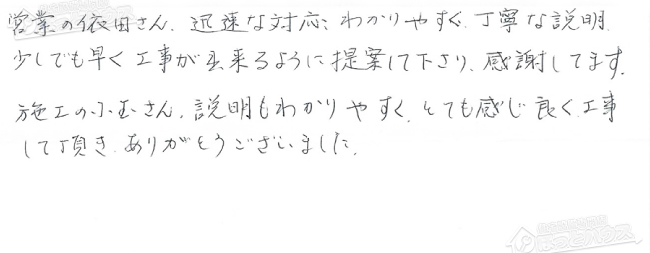 営業の依田さん、迅速な対応、わかりやすく、丁寧な説明、
少しでも早く工事が出来るように提案して下さり、感謝してます。
施工の小玉さん、説明もわかりやすく、とても感じ良く工事
して頂き、ありがとうございました。